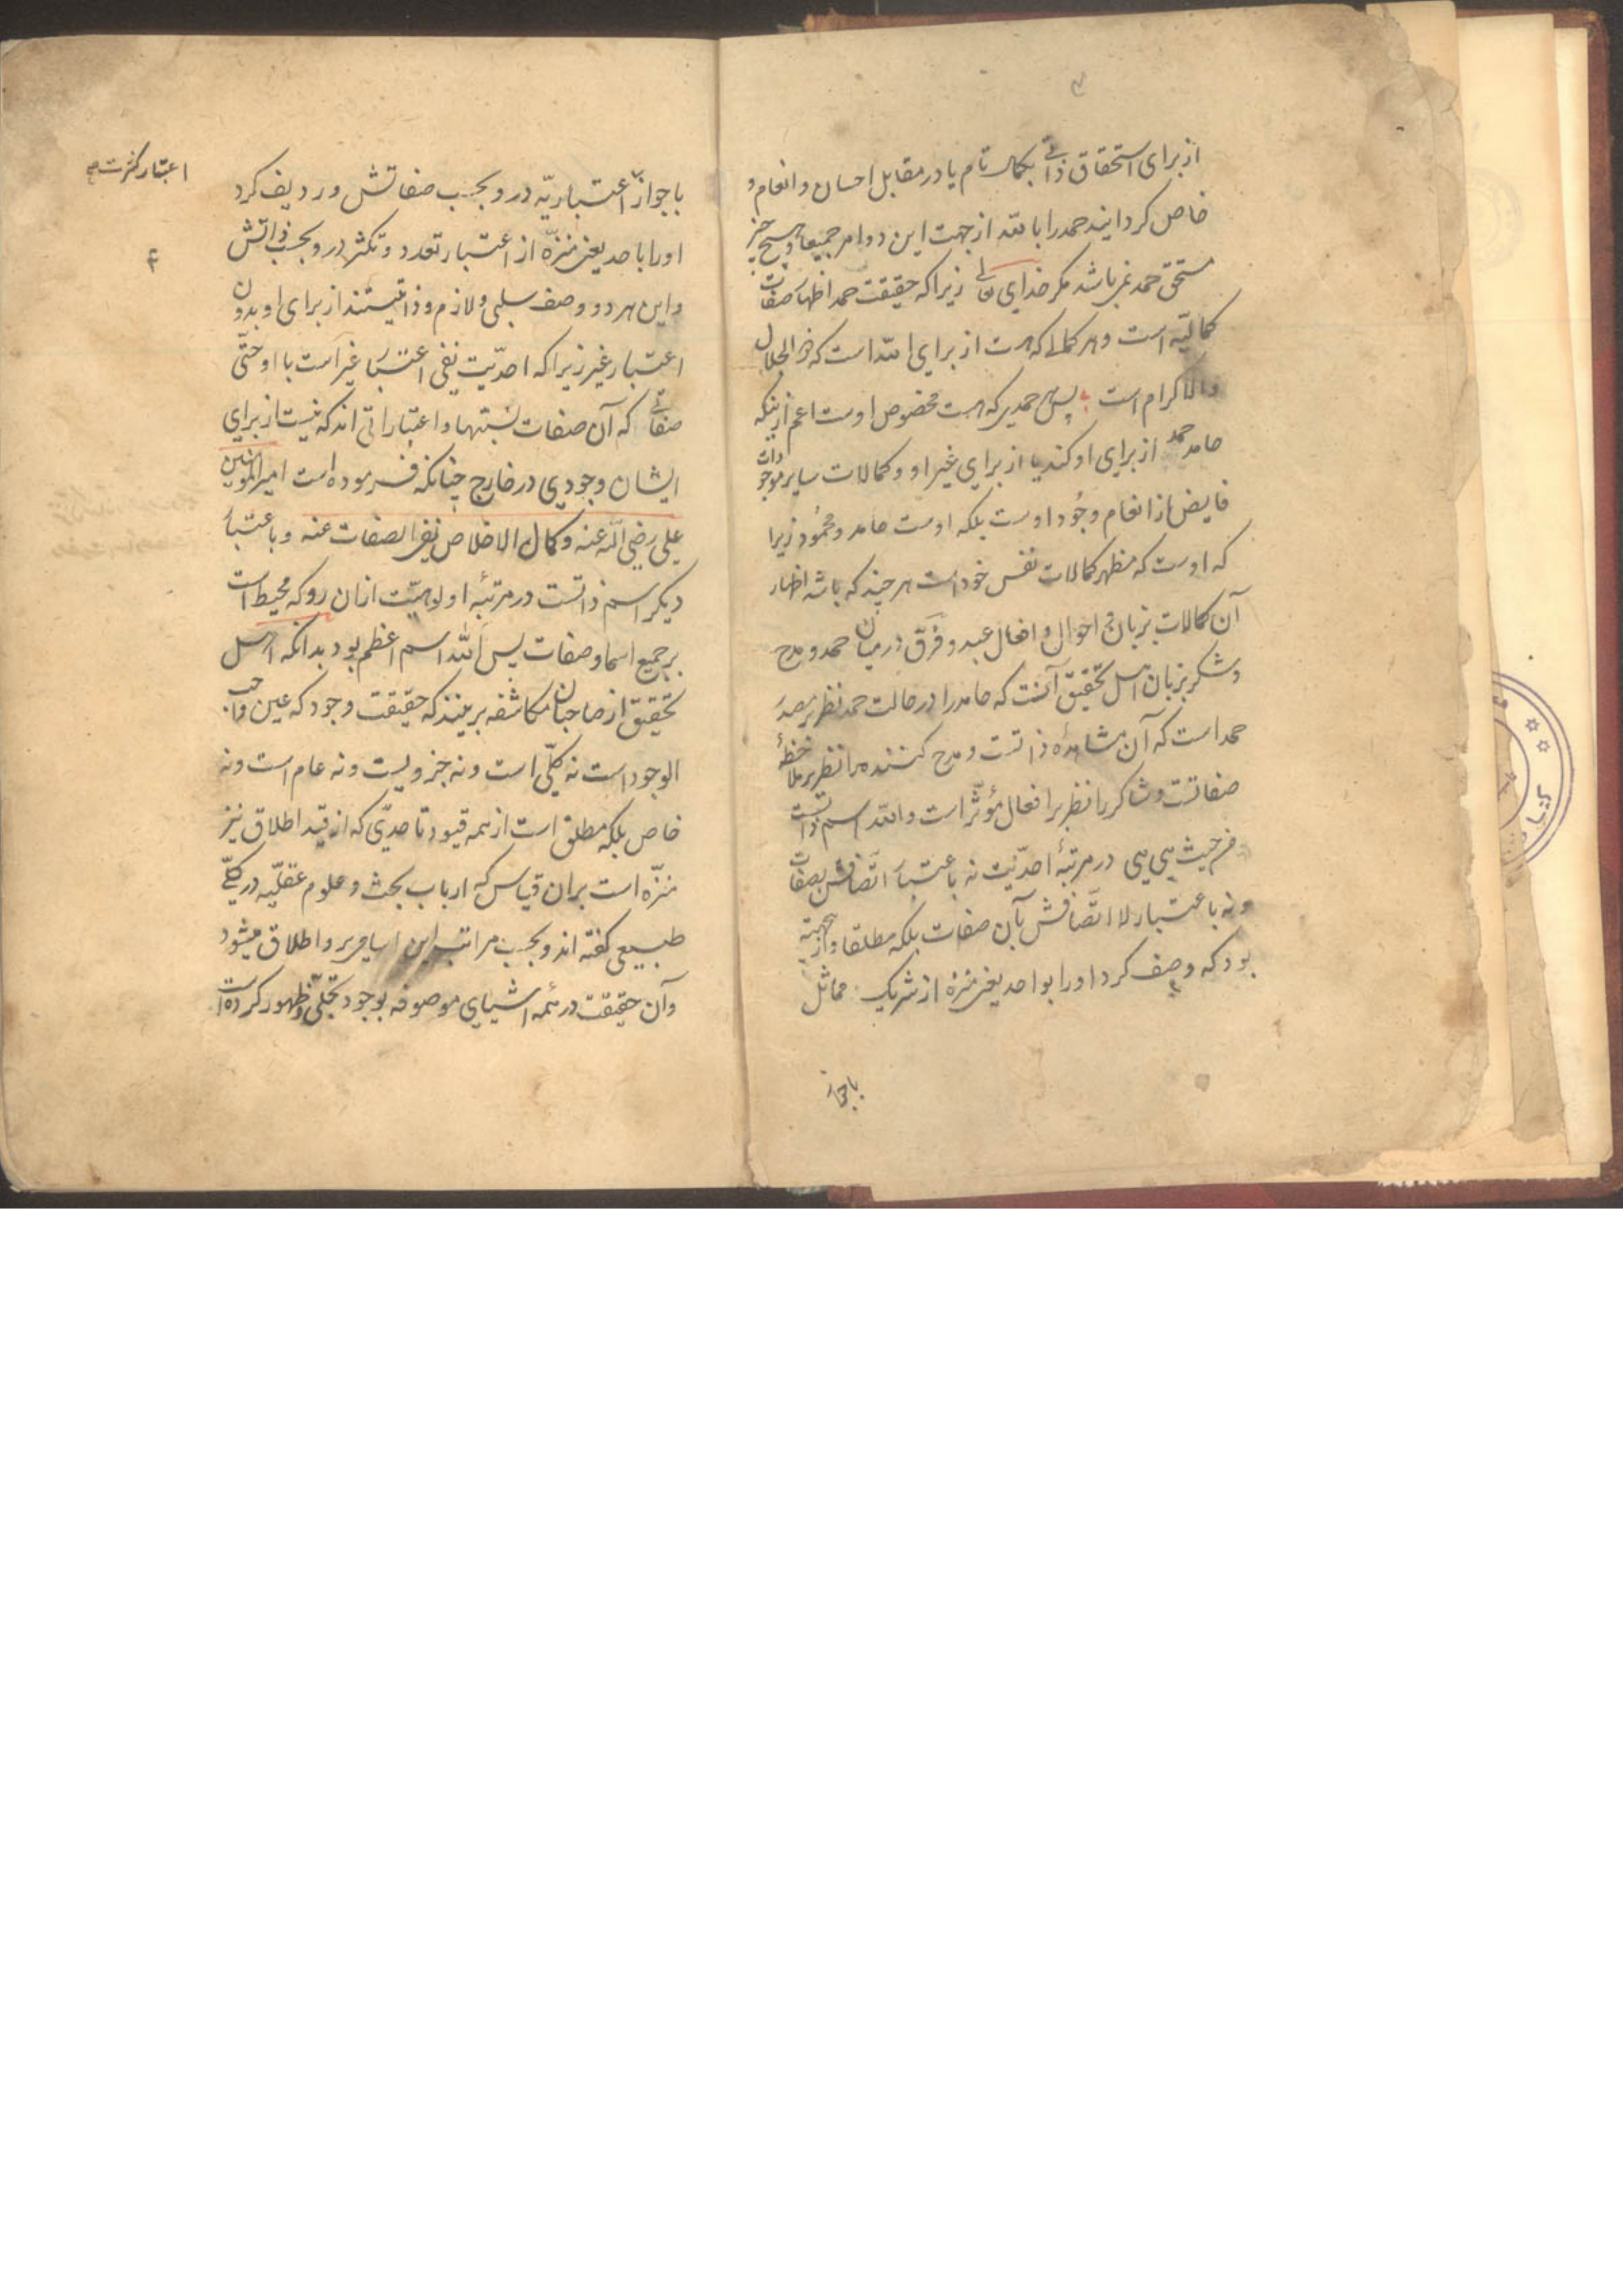 از برای استحقاق ذاتی بکمال تام یا در مقابل احسان و انعام و
خاص کردانیند حمد را بالله از جهت این دو امر جمیعا و هیچ چیز
مستحق حمد نمی باشد مکر خدای تعالی زیرا که حقیقت حمد اظهار صفات
کمالیّه است و هر کمالی که هست از برای الله است که ذو الجلال
والاکرام است پس هر حمدی که هست مخصوص اوست اعم ازینکه
حامد حمد از برای او کند یا از برای غیر او و کمالات سایر موجودات
فایض از انعام وجُود اوست بلکه اوست حامد و محمُود زیرا
که اوست که مظهر کمالات نفس خود است هر چند که باشد اظهار
آن کمالات بزبان و احوال و افعال عبد و فرق در میان حمد و مدح
و شکر بزبان اهل تحقیق آنست که حامد را در حالت حمد نظر بر مصدر
حمد است که آن مشاهدهٔ ذاتست و مدح کننده را نظر بر ملاحظهٔ
صفاتست و شاکر را نظر بر افعال مؤثّر است والله اسم ذاتست
من حیث هی هی در مرتبهٔ احدّیت نه باعتبار اتّصافش بصفات
و نه باعتبار لا اتّصافش بآن صفات بلکه مطلقا و از
بود که وصف کرد او را بواحد یعنی منزه از شریک مماثل
باجواز
باجواز اعتباریّه در و بحسب صفاتش و ردیف کرد
اعتبار کثرت صح
او را باحد یعنی منزّه از اعتبار تعدد و تکثر در و بحسب ذاتش
۴
و این هر دو وصف سلبی و لازم و ذاتیستند از برای او بدون
اعتبار غیر زیرا که احدّیت نفی اعتبار غیر است با او حتّی
صفاتی که آن صفات نسبتها و اعتباراتی اند که نیست از برای
ایشان وجودی در خارج چنانکه فرموده است امیرالمؤمنین
علی رضی الله عنه و کمال الاخلاص نفی الصفات عنه و باعتبار
دیکر اسم ذاتست در مرتبهٔ اولوهیّت از ان رو که محیط است
بر جمیع اسما و صفات پس الله اسم اعظم بود بدانکه اهل
تحقیق از صاحبان مکاشفه برینند که حقیقت وجود که عین واجب
الوجود است نه کلّی است و نه جزویست و نه عام است و نه
خاص بلکه مطلق است از همه قیود تا حدّی که از قید اطلاق نیز
منزّه است بران قیاس که ارباب بحث و علوم عقلیّه در کلّی
طبیعی کفته اند و بحسب مراتب این اسامی بر و اطلاق میشود
و آن حقیقت در همه اشیای موصوفه بوجود تجلّی و ظهور کرده است